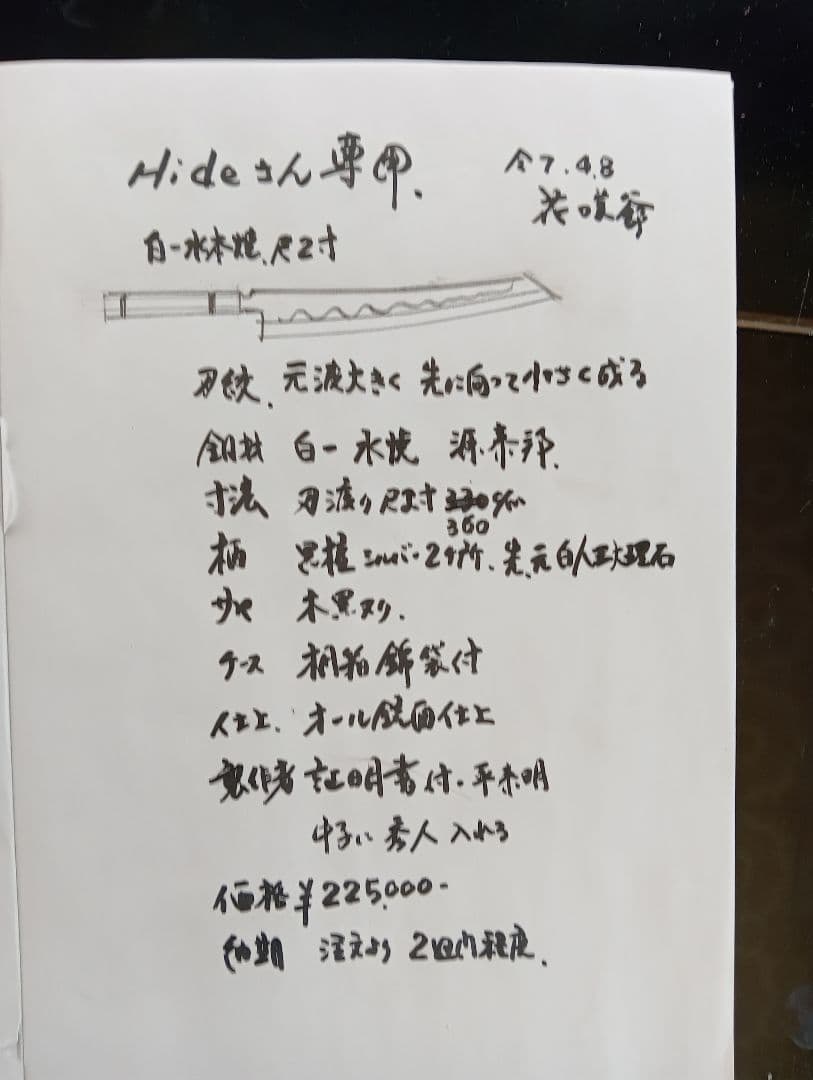 Hideさん専用.
令7.4.8
白一水本焼、尺2寸
刃紋、元波大きく 先に向って小さく成る
鋼材 白一 水焼
寸法 刃渡り尺2寸 360
柄 黒檀 シルバー2ヶ所、先、元白人工大理石
サヤ 木黒ヌリ.
ケース 桐箱 錦袋付
仕上、オール鏡面仕上
製作者 証明書付.
中子に 秀人 入れる
価格 ¥225,000-
納期 注文より 2週間程度、